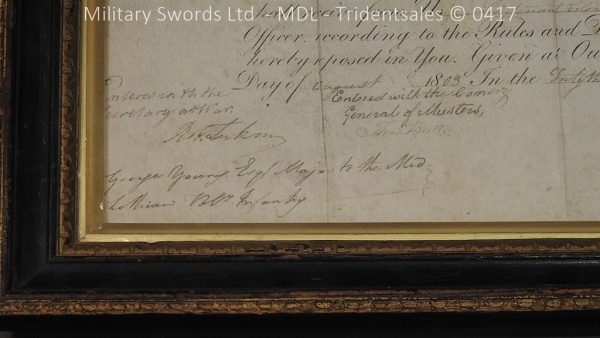 Military Swords Ltd - MDL - Tridentsales © 0417
Officer, according to the Rules and D
hereby reposed in You. Given at Ou
Day of August 1803 In the Fortyth
Entered with the
Secretary at War
Entered with the Comiſsy
General of Musters,
George Young Esqr Major to the Mid-
Lothian Volr Infantry